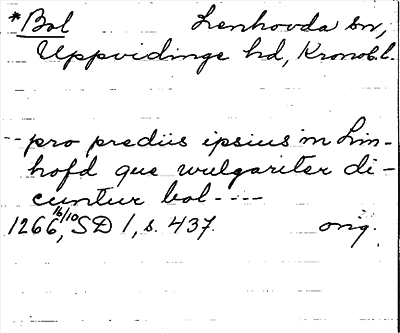 *Bol Lenhovda sn,
Uppvidinge hd, Kronob.l.
-- pro prediis ipsius in Lin-
hofd que wulgariter di-
cuntur bol ----
1266 16/10, SD 1, s. 437. orig.